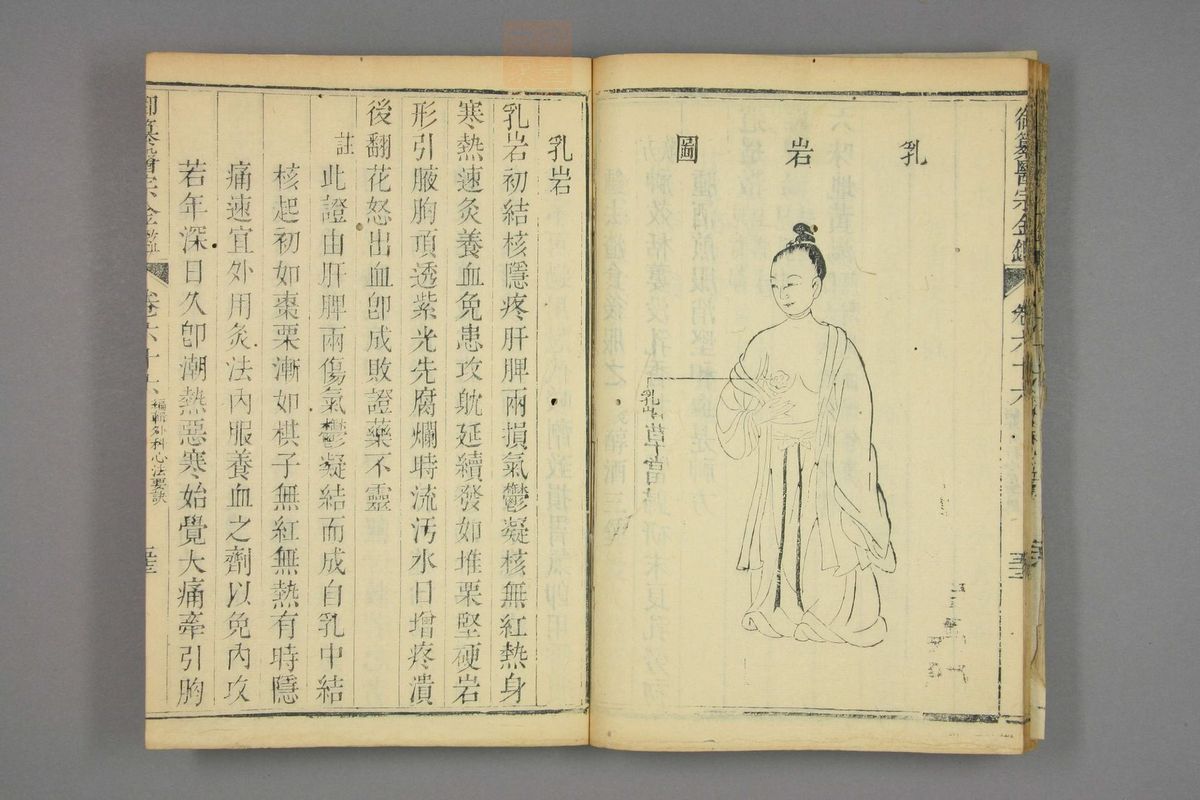 御纂醫宗金鑑
卷六十六
乳岩圖
乳岩
乳岩
乳岩初結核隱疼肝脾兩損氣鬱凝核無紅熱身
寒熱速灸養血免患攻耽延續發如堆栗堅硬岩
形引腋胸頂透紫光先腐爛時流汚水日增疼潰
後翻花怒出血卽成敗證藥不靈
註
此證由肝脾兩傷氣鬱凝結而成自乳中結
核起初如棗栗漸如棋子無紅無熱有時隱
痛速宜外用灸法內服養血之劑以免內攻
若年深日久卽潮熱惡寒始覺大痛牽引胸
御纂醫宗金鑑
卷六十六
編輯外科心法要訣